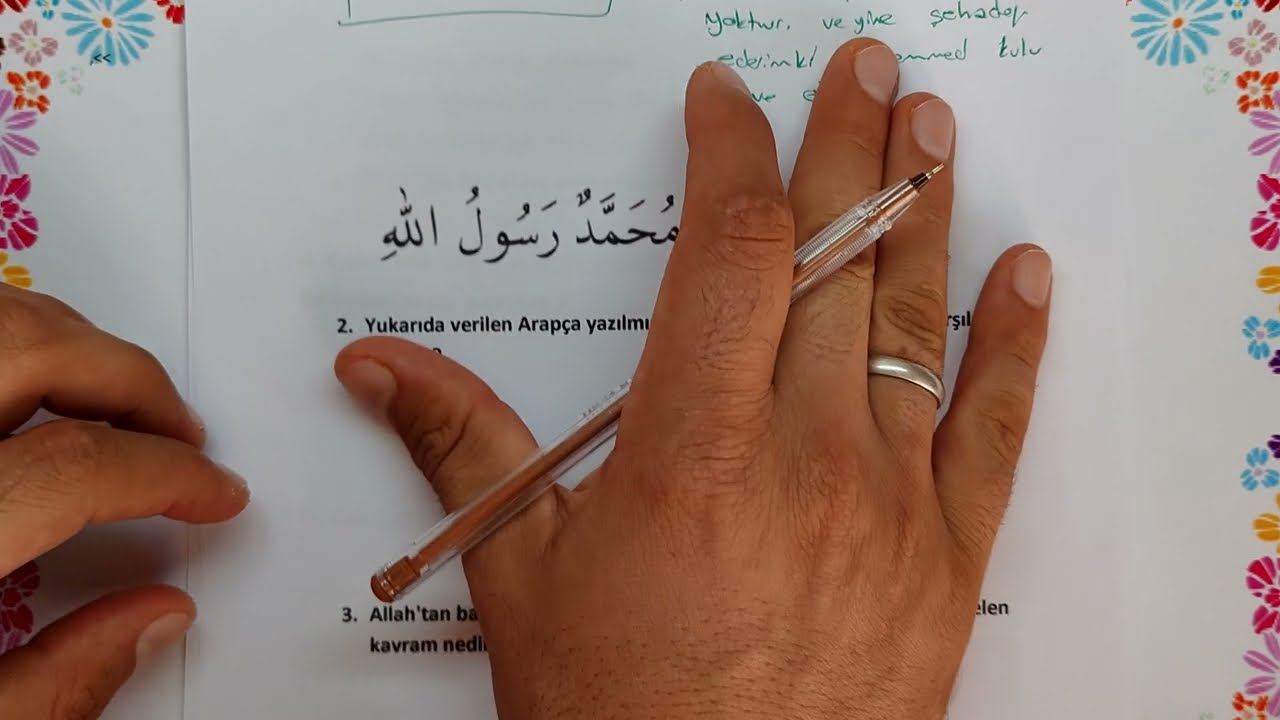 <<
yoktur. ve yine şehadet
ederimki
kulu
ve
مُحَمَّدٌ رَسُولُ اللهِ
2. Yukarıda verilen Arapça yazılmı
3. Allah'tan ba
elen
kavram nedi